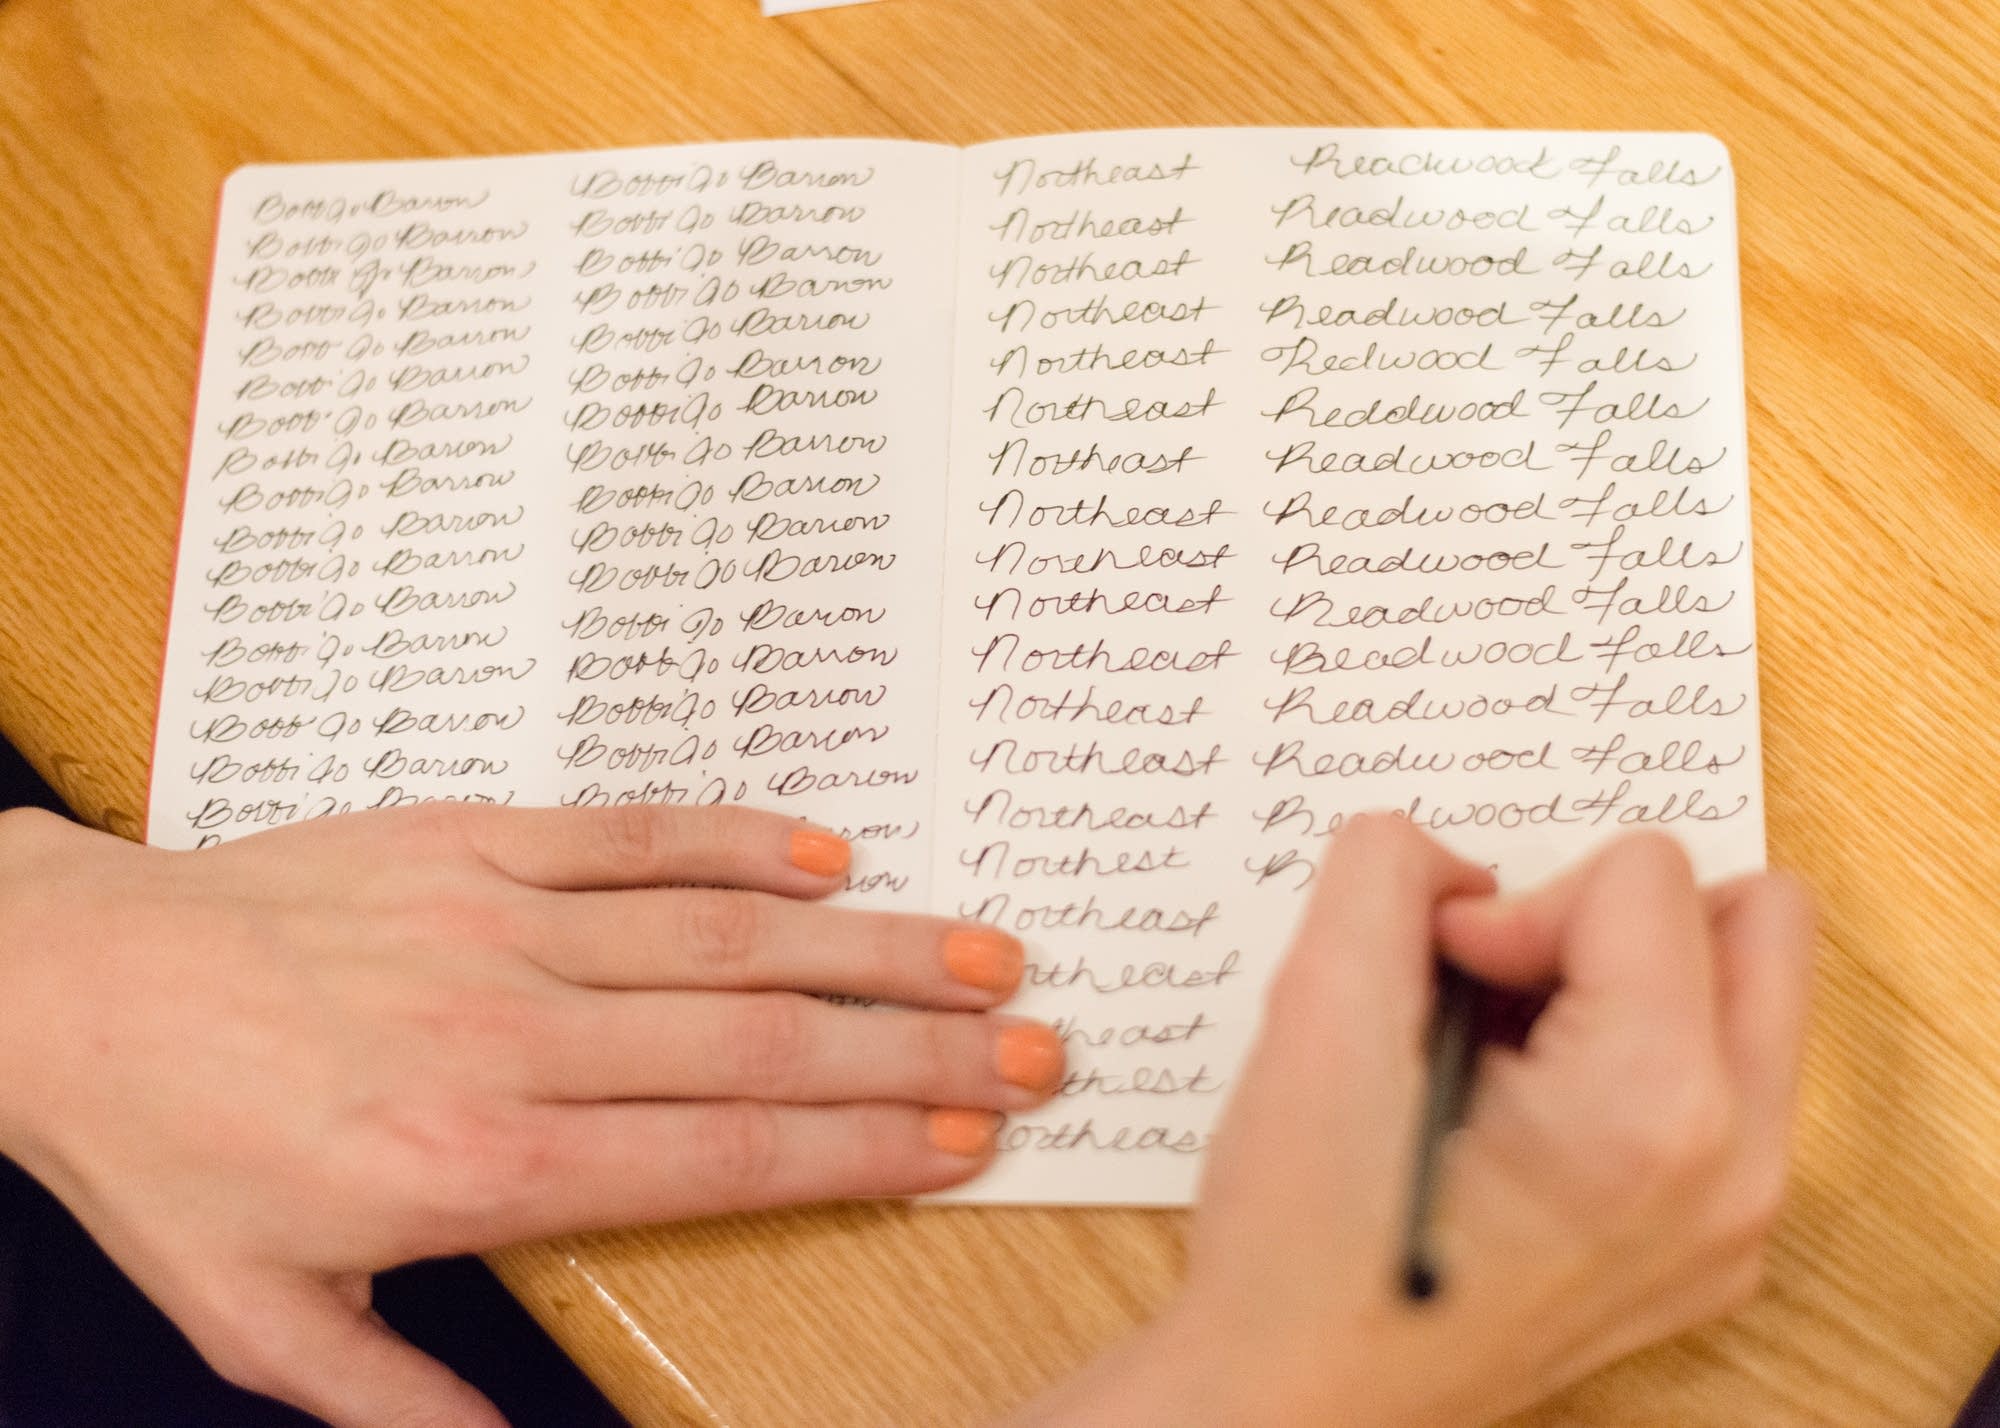 Bobbi Jo Barron
Bobbi Jo Barron
Bobbi Jo Barron
Bobbi Jo Barron
Bobbi Jo Barron
Bobbi Jo Barron
Bobbi Jo Barron
Bobbi Jo Barron
Bobbi Jo Barron
Bobbi Jo Barron
Bobbi Jo Barron
Bobbi Jo Barron
Bobbi Jo Barron
Bobbi Jo Barron
Bobbi Jo Barron
Bobbi Jo Barron
Bobbi Jo Barron
Bobbi Jo Barron
Bobbi Jo Barron
Bobbi Jo Barron
Bobbi Jo Barron
Bobbi Jo Barron
Bobbi Jo Barron
Bobbi Jo Barron
Bobbi Jo Barron
Bobbi Jo Barron
Bobbi Jo Barron
Bobbi Jo Barron
Bobbi Jo Barron
Bobbi Jo Barron
Bobbi Jo Barron
Bobbi Jo Barron
Bobbi Jo Barron
Northeast
Northeast
Northeast
Northeast
Northeast
Northeast
Northeast
Northeast
Northeast
Northeast
Northeast
Northeast
Northeast
Northeast
Northest
Northeast
rtheast
theast
thest
ortheas
Readwood Falls
Readwood Falls
Readwood Falls
Readwood Falls
Redwood Falls
Reddwood Falls
Readwood Falls
Readwood Falls
Readwood Falls
Readwood Falls
Readwood Falls
Readwood Falls
Readwood Falls
Readwood Falls
R